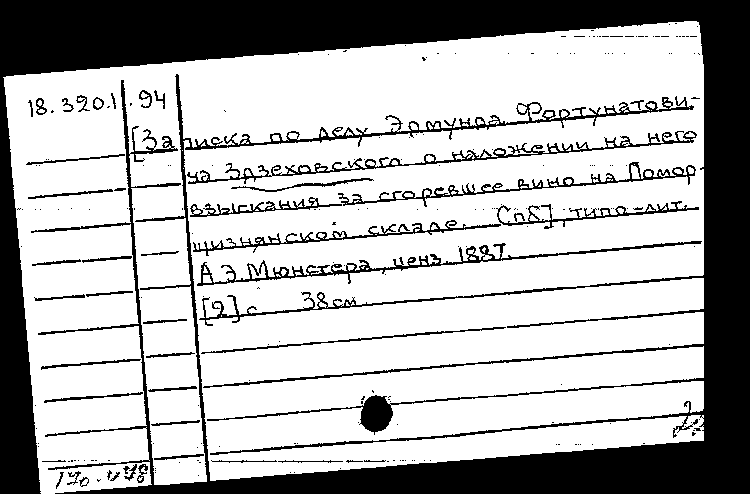 18.320.1.94
[Записка по делу Эдмунда Фортунатови-
ча Эдзеховского о наложении на него
взыскания за сгоревшее вино на Помор-
щизнянском складе. Спб], типо-лит.
А.Э.Мюнстера, ценз. 1887.
[2] с 38 см.